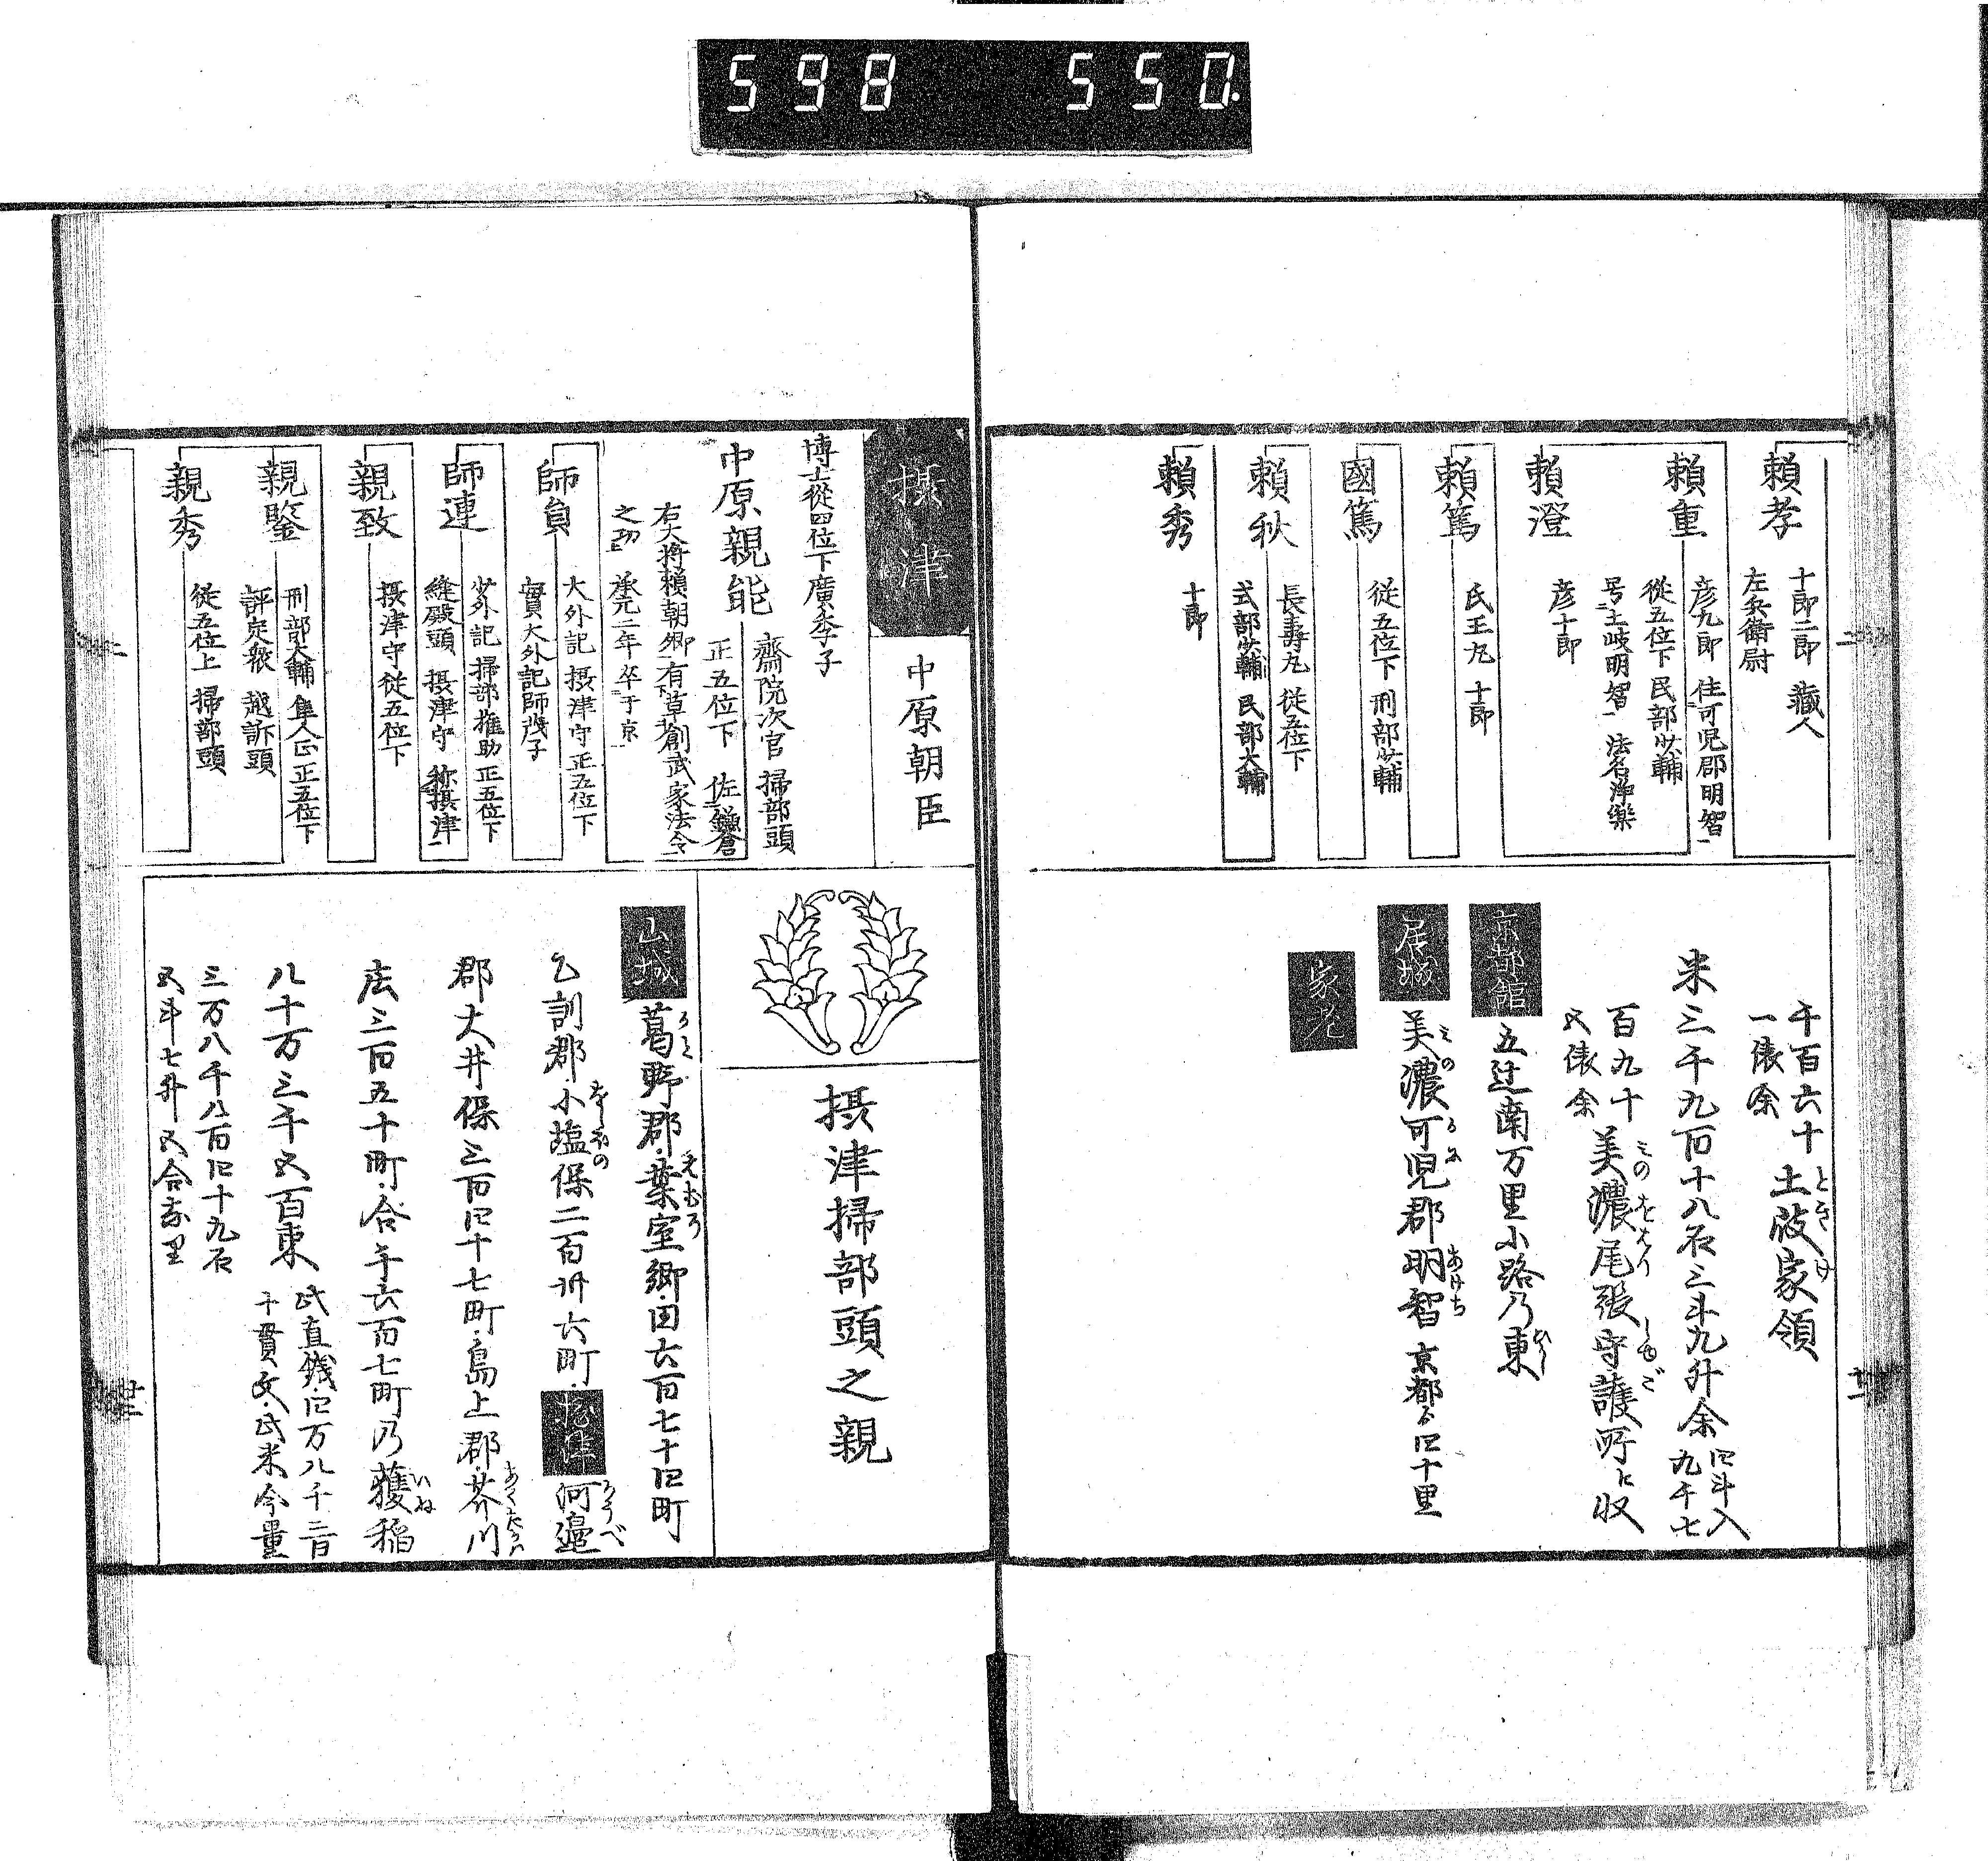 598 550.
頼孝
十郎二郎 蔵人
左兵衛尉
頼重
彦九郎 住可児郡明智
従五位下 民部少輔
号土岐明智 法名浄楽
頼澄
彦十郎
頼篤
氏王丸 十郎
國篤
従五位下 刑部少輔
頼秋
長壽丸 従五位下
式部少輔 民部大輔
頼秀
十郎
千百六十
一俵余
土岐家領
ときけ
米三千九百十八石三斗九升余
四斗入
九千七
百九十
五俵余
美濃尾張守護所に収
みのをはりしゆご
京都館
五辻南万里小路乃東
ひがし
居城
美濃可児郡明智
みのかにあけち
京都ゟ四十里
家老
摂津
中原朝臣
博士従四位下廣季子
中原親能
齋院次官 掃部頭
正五位下 佐鎌倉
右大将頼朝卿有下草創武家法令
之功上 承元二年卒于京
師員
大外記 摂津守 正五位下
實大外記師茂子
師連
少外記 掃部権助 正五位下
縫殿頭 摂津守 称摂津
親致
摂津守 従五位下
親鑒
刑部大輔 隼人正 正五位下
評定衆 越訴頭
親秀
従五位上 掃部頭
摂津掃部頭之親
山城
葛野郡葉室郷田六百七十四町
乙訓郡小塩保二百卅六町
摂津
河邉
郡大井保三百四十七町島上郡芥川
庄三百五十町合千六百七町乃穫稲
八十万三千五百束
此直銭四万八千二百
十貫文此米今量
三万八千八百四十九石
五斗七升五合